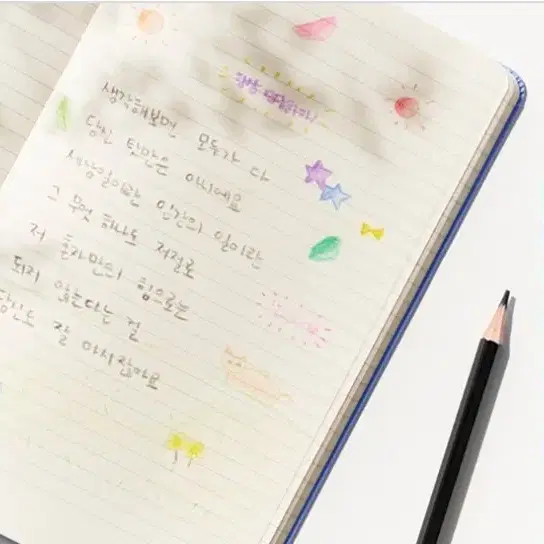 생각해보면 모두가 다
당신 탓만은 아니에요
세상일이란 인간의 일이란
그 무엇 하나도 저절로
저 혼자만의 힘으로는
되지 않는다는 걸
당신도 잘 아시잖아요